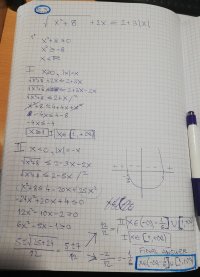 √x²+8 +2x ≤ 2+3|x|
x²+8 ≥ 0
x² ≥ -8
x ∈ ℝ
I x ≥ 0, |x| = x
√x²+8 +2x ≤ 2+3x
√x²+8 ≤ 2+3x-2x
√x²+8 ≤ 2+x /²
x²+8 ≤ 4+4x+x²
8-4x ≤ 4-8
-4x ≤ -4
x ≥ 1 I x ∈ [1, +∞)
II x < 0, |x| = -x
√x²+8 ≤ 2-3x-2x
√x²+8 ≤ 2-5x /²
x²+8 ≤ 4-20x+25x²
-24x²+20x+4 ≤ 0
12x²-10x-2 ≥ 0
6x²-5x-1 ≥ 0
5±√25+24 / 12 = 5±7 / 12
12/12 = 1
-2/12 = -1/6
I x ∈ [1, +∞)
FINAL ANSWER
x ∈ (-∞, -1/6] ∪ [1, +∞)